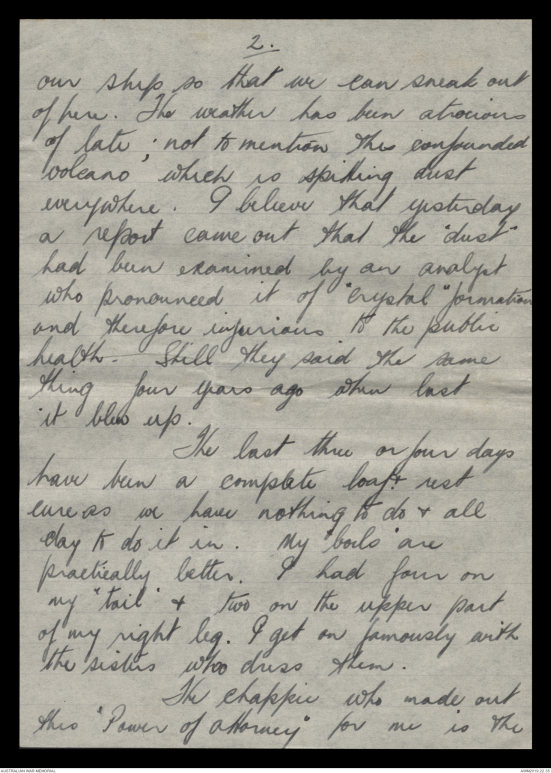 2.
our ship so that we can sneak out
of here. The weather has been atrocious
of late : not to mention this confounded
volcano, which is spitting dust
everywhere. I believe that yesterday
a report came out that the "dust"
had been examined by an analyst
who pronounced it of "crystal" formation
and therefore injurious to the public
health. Still they said the same
thing four years ago when last
it blew up.
The last three or four days
have been a complete loaf & rest
cure as we have nothing to do & all
day to do it in. My "boils" are
practically better. I had four on
my "tail" & two on the upper part
of my right leg. I get on famously with
the sisters who dress them.
The chappie who made out
this "Power of attorney" for me is the
AUSTRALIAN WAR MEMORIAL